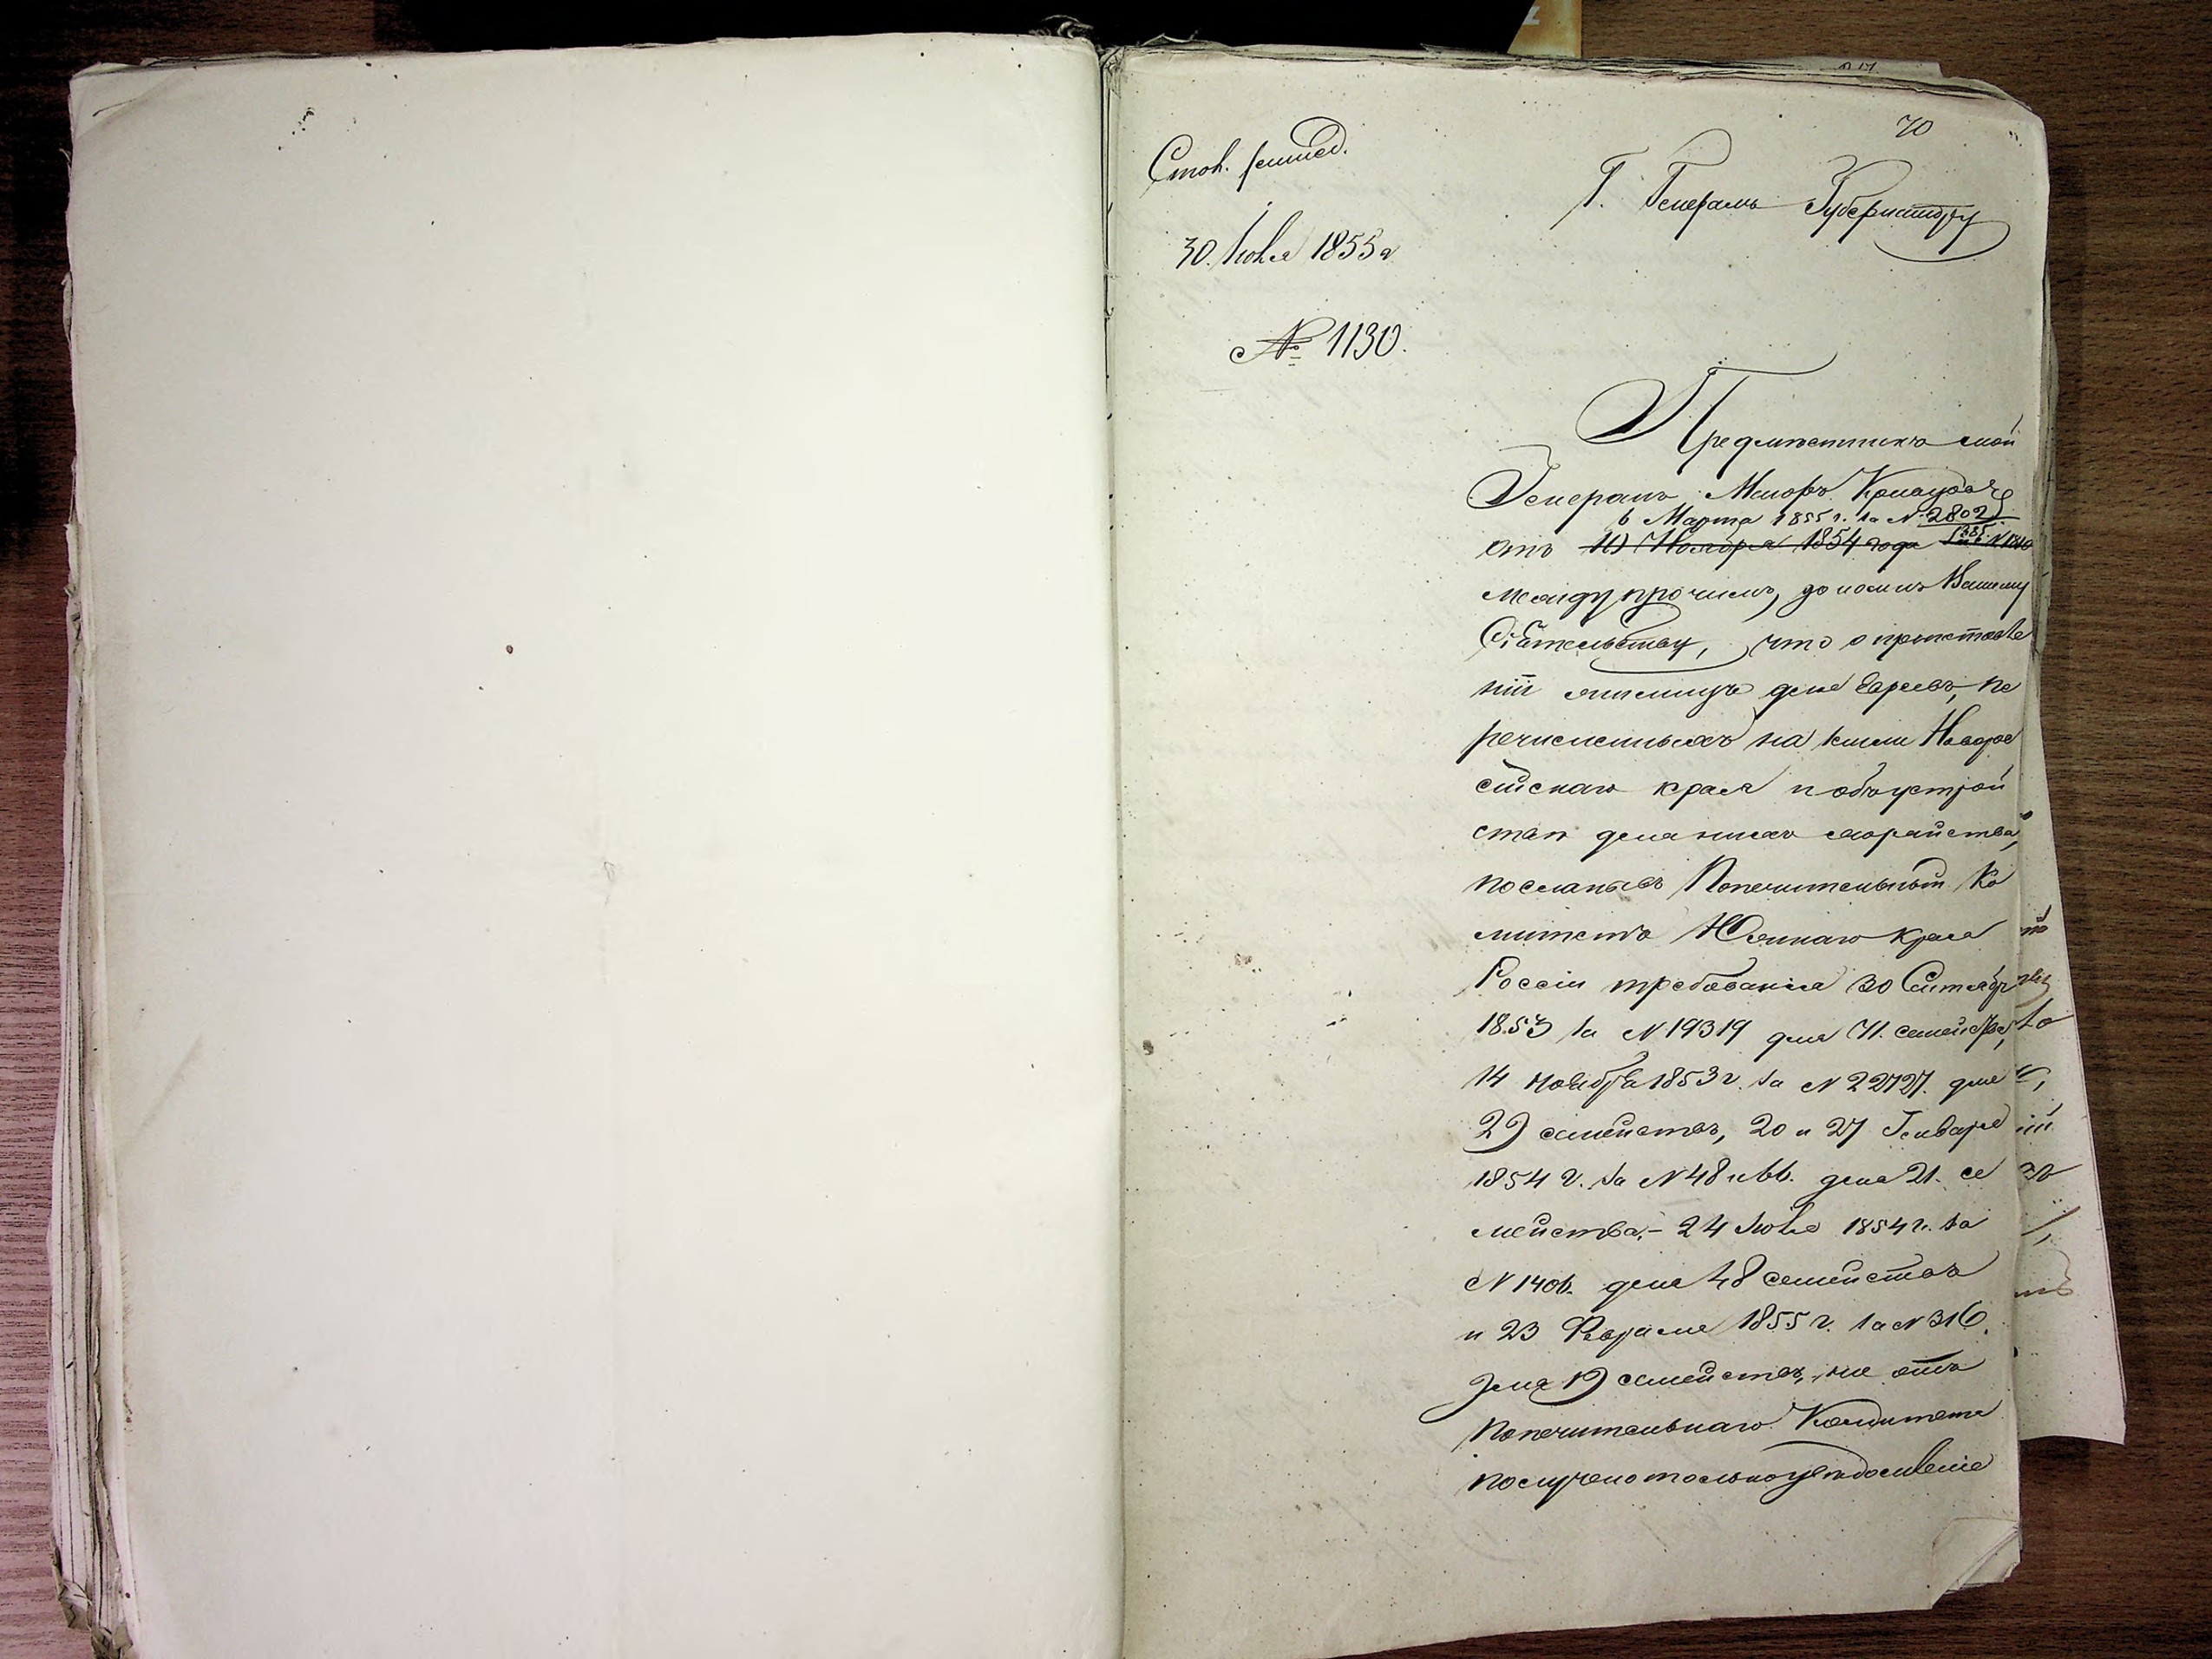 70
Стол. 
30. Июля 1855 г
№ 1130.
Г. Генералъ Губернатору
Предмѣстникъ мой
Генералъ Маіоръ
6 Марта 1855 г. за N. 2802
отъ 10 Ноября 1854 года
между прочимъ, донося Вашему
Сіятельству, что о пріготовле
ніи жилищъ для евреевъ, пе
речисленныхъ на земли Новорос
сійскаго края и объ устрой
ствѣ для нихъ хозяйства,
посланы въ Попечительный Ко
митетъ Южнаго края
Россіи требованія 30 Сентябр
1853 за N 19319 для 71. семейства,
14 Ноября 1853 г. за N 22727. для
29 семействъ, 20 и 27 Генваря
1854 г. за N 48 и 66. для 21. се
мейства, - 24 Іюля 1854 г. за
N 1406. для 48 семействъ
и 23 Февраля 1855 г. за N 316.
для 19 семействъ, но отъ
Попечительнаго Комитета
получено только увѣдомленіе